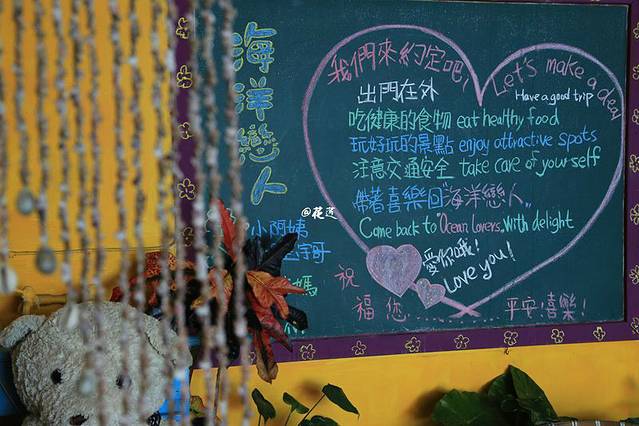 海洋戀人
我們來約定吧! Let's make a deal
出門在外 Have a good trip
吃健康的食物 eat healthy food
玩好玩的景點 enjoy attractive spots
注意交通安全 take care of yourself
帶著喜樂回"海洋戀人"
Come back to "Ocean Lovers" with delight
愛你哦!
Love you!
祝福您............平安!喜樂!
小阿姨
宇哥
媽
@花莲